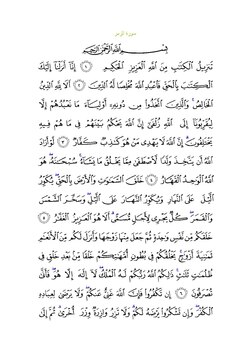 سورة الزمر
بِسْمِ ٱللَّهِ ٱلرَّحْمَٰنِ ٱلرَّحِيمِ
تَنزِيلُ ٱلْكِتَٰبِ مِنَ ٱللَّهِ ٱلْعَزِيزِ ٱلْحَكِيمِ ١ إِنَّآ أَنزَلْنَآ إِلَيْكَ
ٱلْكِتَٰبَ بِٱلْحَقِّ فَٱعْبُدِ ٱللَّهَ مُخْلِصًا لَّهُ ٱلدِّينَ ٢ أَلَا لِلَّهِ ٱلدِّينُ
ٱلْخَالِصُ وَٱلَّذِينَ ٱتَّخَذُوا۟ مِن دُونِهِۦٓ أَوْلِيَآءَ مَا نَعْبُدُهُمْ إِلَّا
لِيُقَرِّبُونَآ إِلَى ٱللَّهِ زُلْفَىٰٓ إِنَّ ٱللَّهَ يَحْكُمُ بَيْنَهُمْ فِى مَا هُمْ فِيهِ
يَخْتَلِفُونَ إِنَّ ٱللَّهَ لَا يَهْدِى مَنْ هُوَ كَٰذِبٌ كَفَّارٌ ٣ لَّوْ أَرَادَ
ٱللَّهُ أَن يَتَّخِذَ وَلَدًا لَّٱصْطَفَىٰ مِمَّا يَخْلُقُ مَا يَشَآءُ سُبْحَٰنَهُۥ هُوَ
ٱللَّهُ ٱلْوَٰحِدُ ٱلْقَهَّارُ ٤ خَلَقَ ٱلسَّمَٰوَٰتِ وَٱلْأَرْضَ بِٱلْحَقِّ يُكَوِّرُ
ٱلَّيْلَ عَلَى ٱلنَّهَارِ وَيُكَوِّرُ ٱلنَّهَارَ عَلَى ٱلَّيْلِ وَسَخَّرَ ٱلشَّمْسَ
وَٱلْقَمَرَ كُلٌّ يَجْرِى لِأَجَلٍ مُّسَمًّى أَلَا هُوَ ٱلْعَزِيزُ ٱلْغَفَّٰرُ ٥
خَلَقَكُم مِّن نَّفْسٍ وَٰحِدَةٍ ثُمَّ جَعَلَ مِنْهَا زَوْجَهَا وَأَنزَلَ لَكُم مِّنَ ٱلْأَنْعَٰمِ
ثَمَٰنِيَةَ أَزْوَٰجٍ يَخْلُقُكُمْ فِى بُطُونِ أُمَّهَٰتِكُمْ خَلْقًا مِّنۢ بَعْدِ خَلْقٍ فِى
ظُلُمَٰتٍ ثَلَٰثٍ ذَٰلِكُمُ ٱللَّهُ رَبُّكُمْ لَهُ ٱلْمُلْكُ لَآ إِلَٰهَ إِلَّا هُوَ فَأَنَّىٰ
تُصْرَفُونَ ٦ إِن تَكْفُرُوا۟ فَإِنَّ ٱللَّهَ غَنِىٌّ عَنكُمْ وَلَا يَرْضَىٰ لِعِبَادِهِ
ٱلْكُفْرَ وَإِن تَشْكُرُوا۟ يَرْضَهُ لَكُمْ وَلَا تَزِرُ وَازِرَةٌ وِزْرَ أُخْرَىٰ ثُمَّ إِلَىٰ